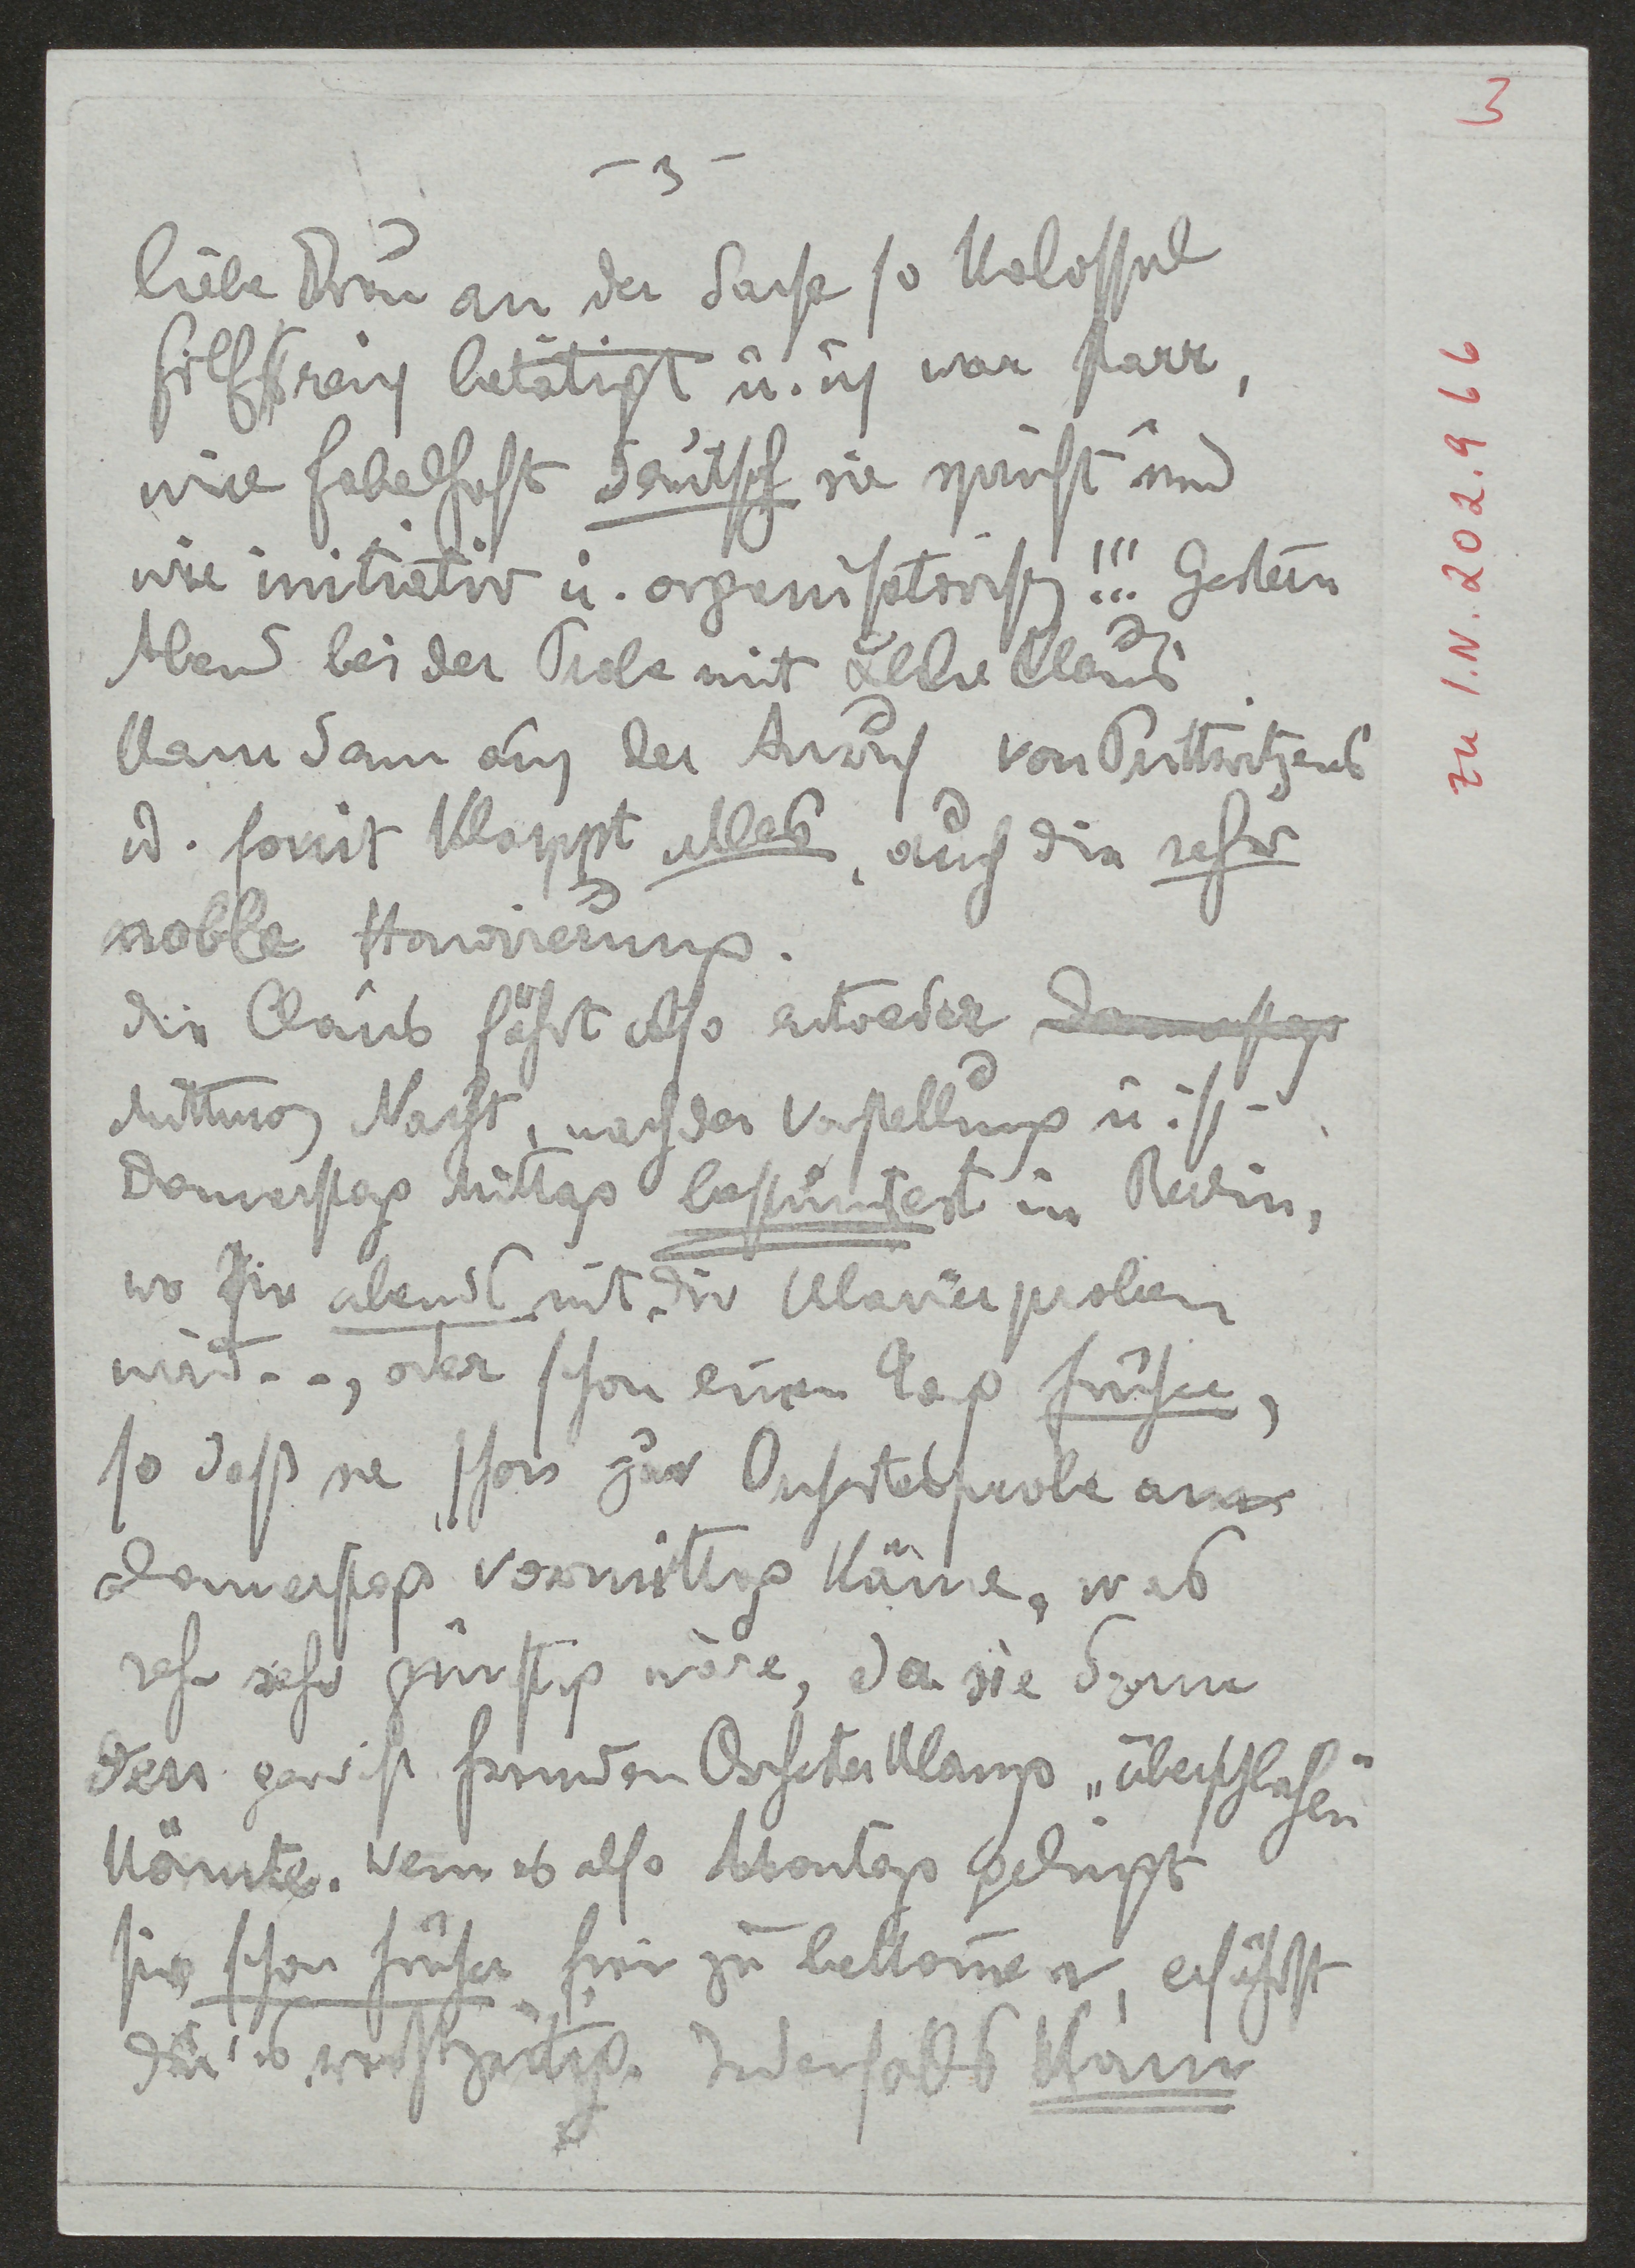 3
- 3 -
liebe Frau an der Sache so kolossal
hilfreich betätigt u. ich war starr,
wie fabelhaft deutsch sie spricht und
wie initiativ u. organisatorisch!!! Gestern
Abend bei der Probe mit Claus
kam dann auch der Anruf von Prittwitzens
u. somit klappt alles, auch die sehr
noble Honorierung.
Die Claus fährt also entweder Donnerstag
Mittwoch Nacht, nach der Vorstellung u. ist
Donnerstag Mittag bestimmtest in Berlin,
wo sie abends mit dir Klavierproben
wird.., oder schon einen Tag früher,
so dass sie schon zur Orchesterprobe am
Donnerstag Vormittag käme, was
sehr sehr günstig wäre, da sie dann
den gewiss fremden Orchesterklang „überschlafen"
könnte. Wenn es also Montag gelingt
sie schon früher frei zu bekommen, erfährst
du's rechtzeitig. Jedenfalls kann
zu I.N. 202.966